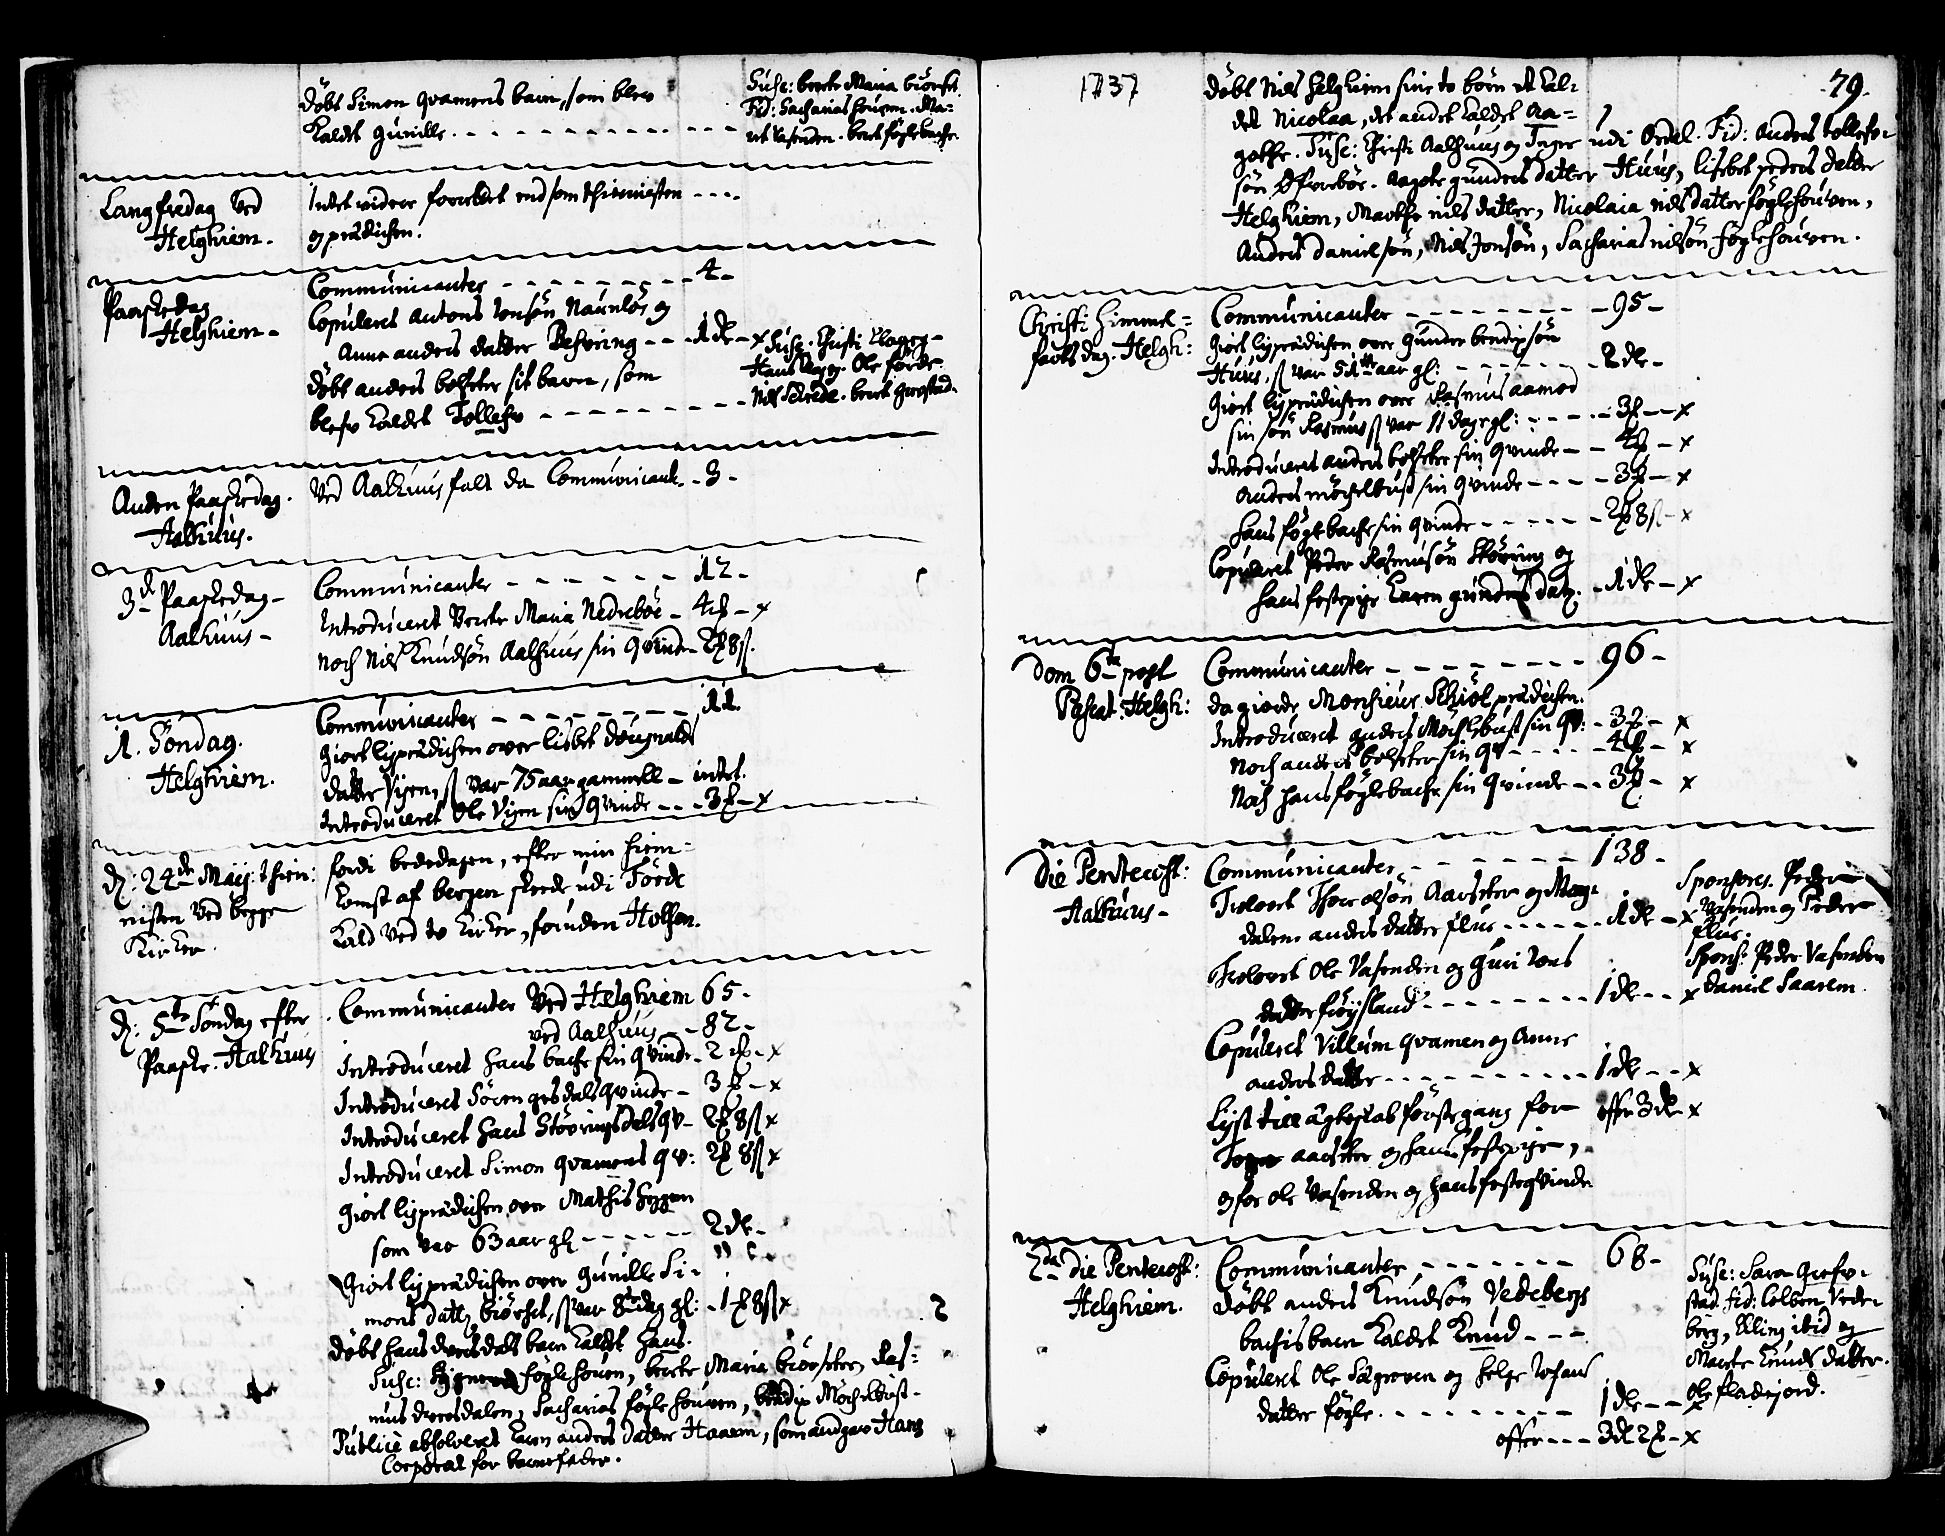 döbt Simon Qvamens barn, som blev
kaldt Gunille.
Susc: berte Maria biörset.
Fid: Sacharias houven. Ma-
rit Vasenden. berit föglebache.
Langfredag Ved
Helghiem.
Intet videre forrettet end som thienisten
og prædichen.
Paaskedag
Helghiem -
Communicanter 4 -
Copuleret Antons Jonsön Naunløs og
Anna anders datter Befring 1 dr - x
döbt anders bolseter sit barn, som
blefv kaldet Tollefv
Susc. Christi Klogeg-
Hans Ole förde
Nils berit Grefstad.
Anden Paaskedag.
Aalhuus.
Ved Aalhuus falt da Communicant. 3 -
3de Paaskedag -
Aalhuus -
Communicanter 12 -
Introduceret berete Maria Nedreböe - 4 - x
Noch Nils Knudsön Aalhuus sin Qvinde 2 8 s.
1. Söndag.
Helghiem.
Communicanter 11.
Giort lijprædichen over lisbet dougnalds
datter Vijen, s var 75 aar gammell - intet.
Introduceret Ole Vijen sin Qvinde 3 - x
d: 24de Maij: thien:
nisten Ved begge
Kirker.
fordi bededagen, efter min hiem-
komst af bergen skede udi Förde
kald ved to kirker, foruden Holsen.
d: 5te Söndag efter
Paaske. Aalhuus
Communicanter Ved Helghiem 65 -
ved Aalhuus - 82 -
Introduceret hans bache sin Qvinde 2 - x
Introduceret Sören gesdals qvinde - 3 - x
Introduceret hans Stöverigsdals qv - 2 8 s x
Introduceret Simon Qvamens qv: 2 8 s x
Giort lijprædichen over Mathis heggen
som var 63 aar gl 2 dr -
Giort lijprædichen over Gunille Si-
mons datt. biörset, s var 8te dag gl: - 1 8 s x
döbt hans deresdals barn kaldt Hans.
Susc: föglehouven, berte Maria biörseter, Ras-
mus deresdalen, Sacharias föglehouven, bendix Möchelbust -
Publicè absolveret Karen anders datter Haarem, som andgav Hans
Corporal for barnefader.
1737
79.
döbt Nils helghiem sine to börn et kal-
det Nicolaa, det andet kaldet Aa-
gothe. Susc: Christi Aalhuus og Inger udi Ordal. Fid: Anders tollefv-
sön Öfrebö. Aagote gunders datter Huus, lisbet peders datter
Helghiem, Marthe nils datter, Nicolaia nils datter föglehouven,
Anders danielsön, Nils Jonsön, Sacharias nilsön föglehouven.
Christi himmel-
farts dag. Helgh:
Communicanter - 95 -
Giort lijprædichen over Gunder bendixsön
Huus, s var aar gl: 2 dr -
Giort lijprædichen over Rasmus aamod
sin sön Rasmus s var 11 dage gl: 3 - x
Introduceret anders bolseter sin Qvinde - 4 - x
Anders möchelbust sin Qvinde 3 - x
hans föglebache sin Qvinde 2 8 s - x
Copuleret Peder Rasmusön Stövring og
hans festepige Karen gunders datt. 1 dr - x
Dom 6te post
Pascat: Helgh:
Communicanter 96 -
da giorde Monsieur Schiöt prædichen.
Introduceret anders Möchelbust sin Qv: - 3 - x
Noch anders bolseter sin qv 4 - x
Noch hans föglebache sin Qvinde 3 - x
Die Pentecost:
Aalhuus -
Communicanter 138 -
Trolovet Iver olsön Aarseter og Mag-
dalene anders datter flus 1 dr - x
Sponsores. Peder
Vasenden og Peder
flus.
Trolovet Ole Vasenden og Guri Jons
datter flöysland 1 dr - x
Spons: Peder Vasenden
daniel Saarem.
Copuleret Villum Qvamen og Anne
anders datter 1 dr - x
Lijst till ægteskab förste gang for offer 3 dr x
aarseter og hans festepige,
og for ole Vasenden og hans festeqvinde
2da die Pentecost:
Helghiem.
Communicanter 68 -
döbt anders Knudsön Vedebergs
bachis barn kaldet Knud
Susc: Sara Grefv-
stad. fid: Colben Vede-
berg, Elling ibid og
Marte Knuds datter.
Ole fladejord.
Copuleret Ole Sægroven og helge Johans
datter fögle. 1 dr - x
offer 3 dr 2 - x